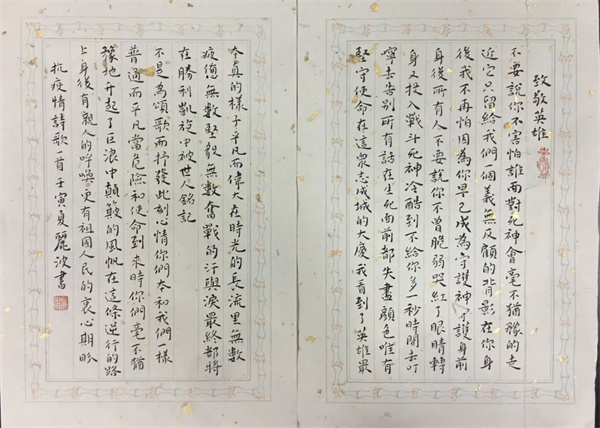 致敬英雄
不要說你不害怕誰面對死神會毫不猶豫的走
近它只留給我們一個義無反顧的背影在你身
後我不再怕因為你早已成為守護神守護身前
身後所有人不要說你不曾脆弱哭紅了眼睛轉
身又投入戰斗死神冷酷到不給你多一秒時間去叮
嚀去告別所有話在生死面前都失盡顏色唯有
堅守使命在這眾志成城的大廈我看到了英雄最
本真的樣子平凡而偉大在時光的長流里無數
疲憊無數堅毅無數奮戰的汗與淚最終都將
在勝利凱旋中被世人銘記
不是為頌歌而抒發此刻心情你們本和我們一樣
普通而平凡當危險和使命到來時你們毫不猶
豫地升起了巨浪中顛簸的風帆在這條逆行的路
上身後有親人的呼喚更有祖國人民的衷心期盼
抗疫情詩歌一首壬寅夏麗波書